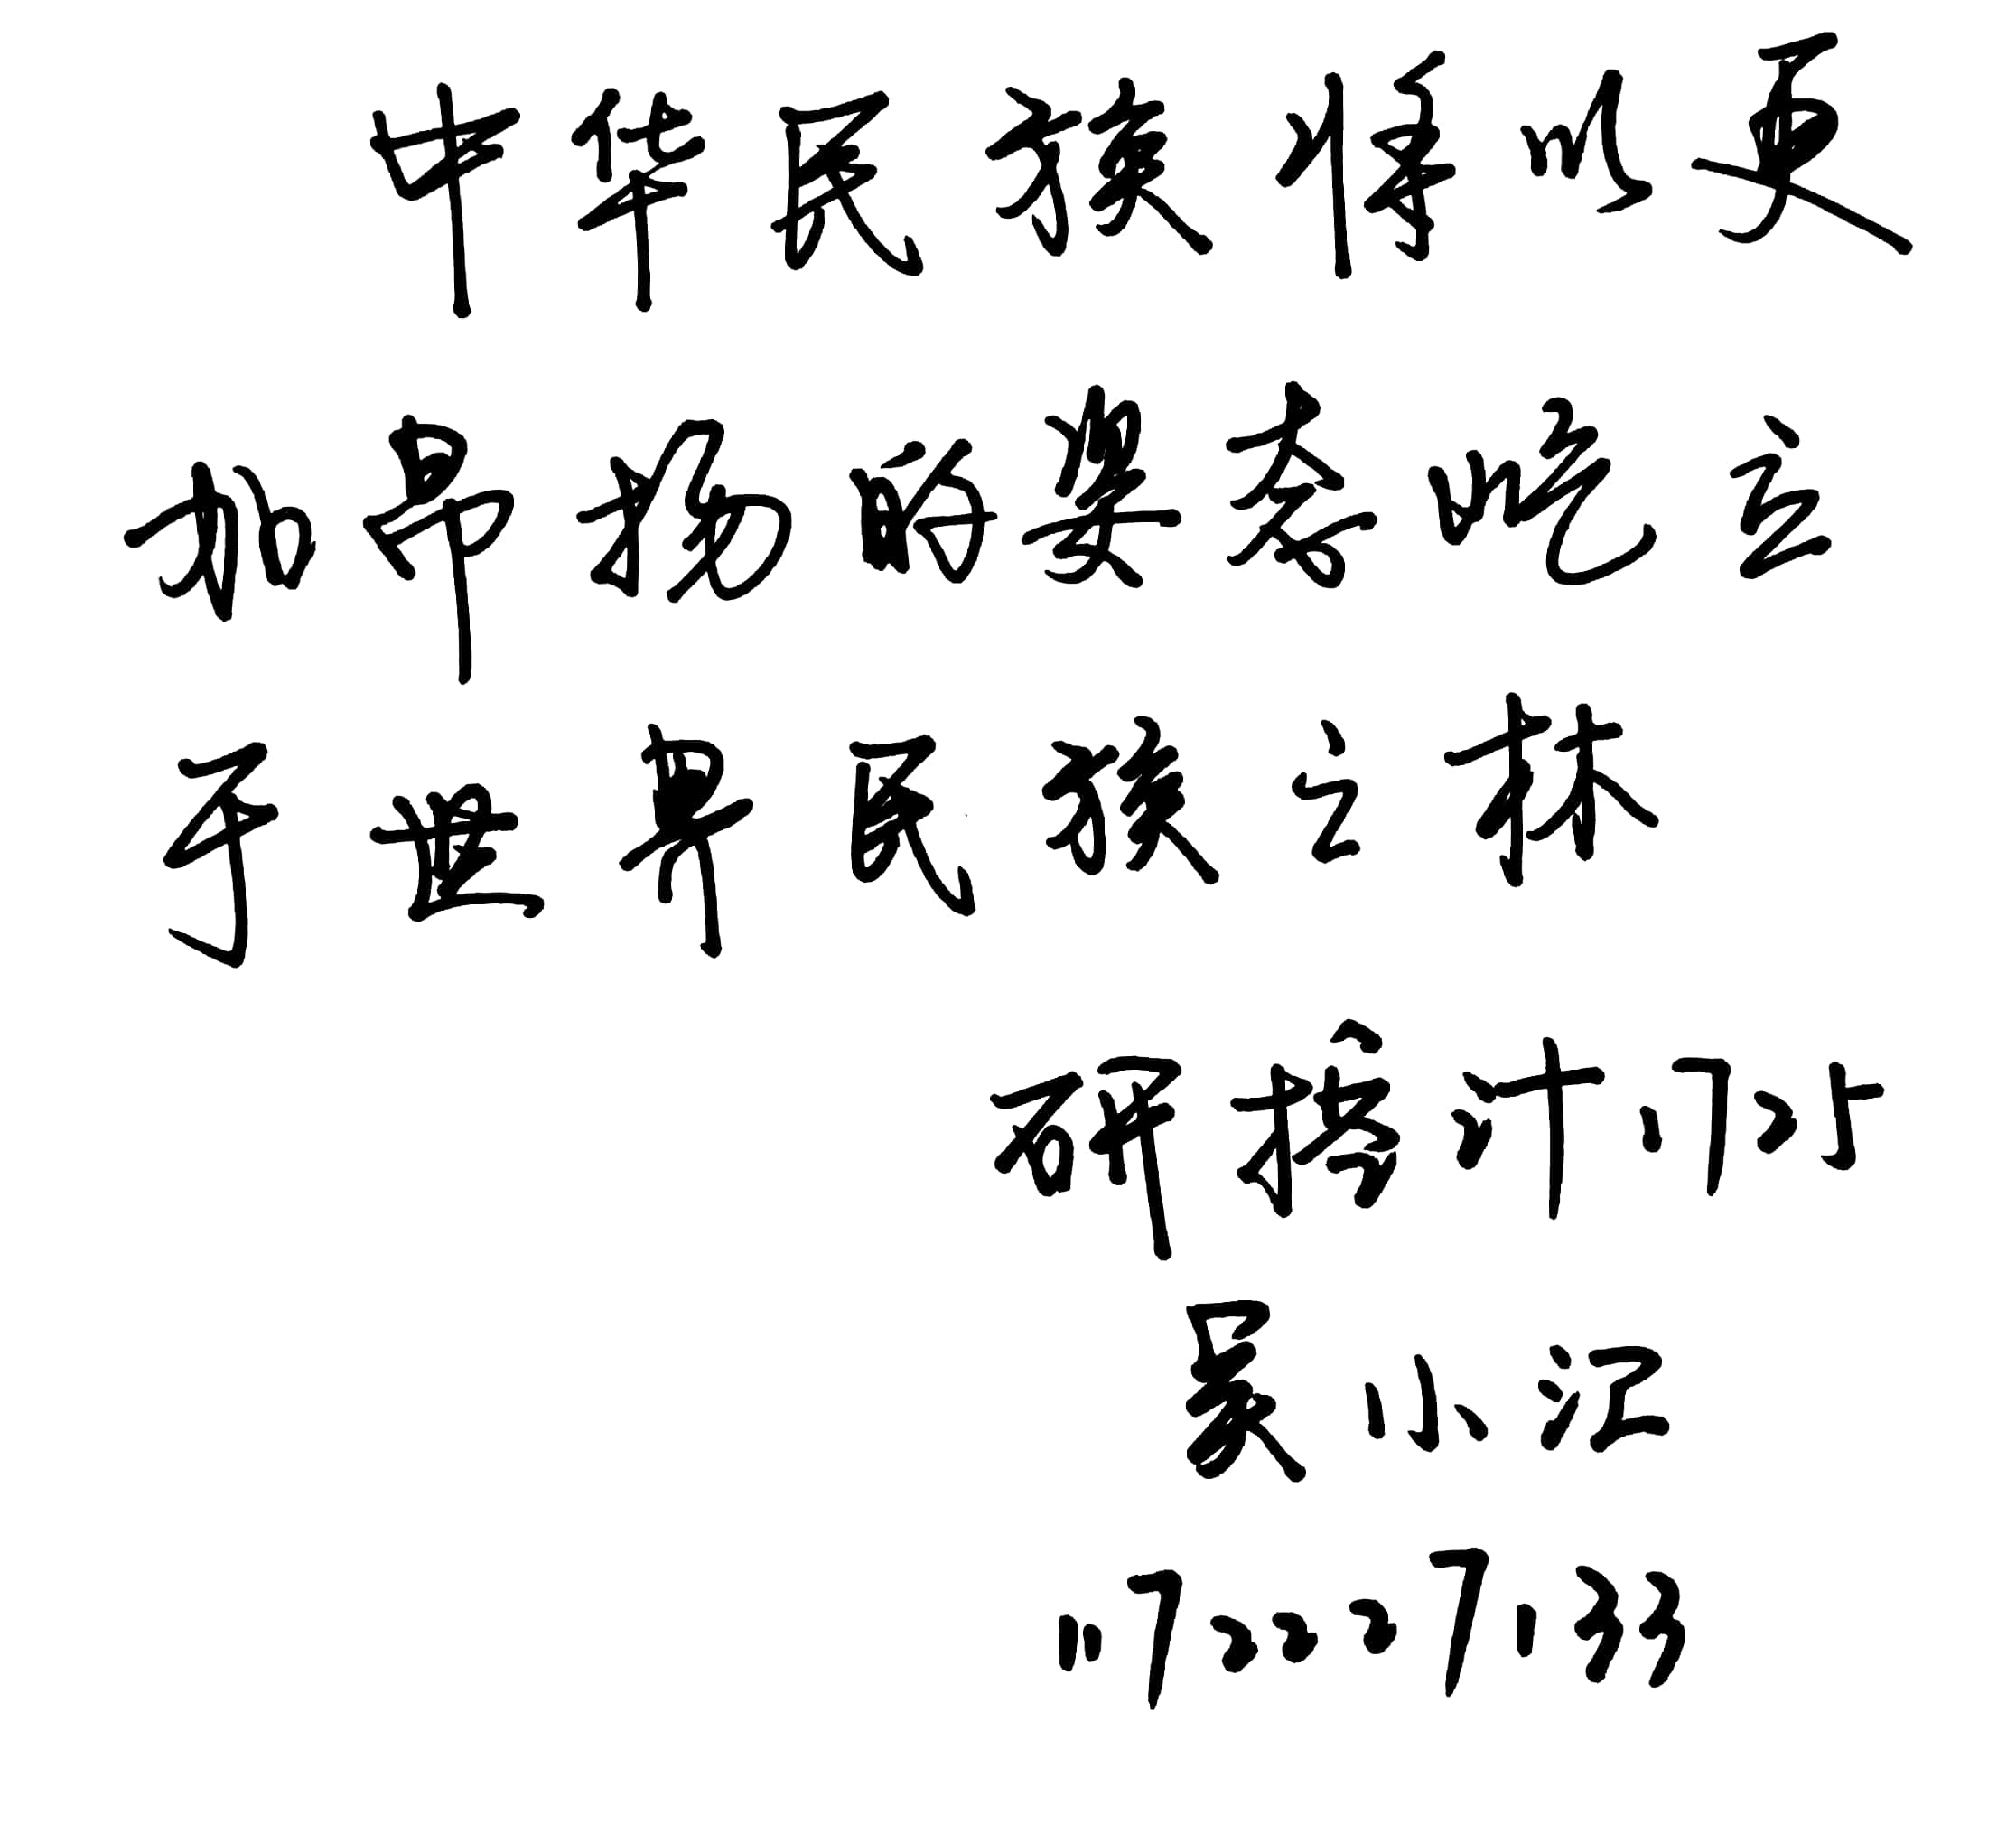 中华民族将以更
加昂扬的姿态屹立
于世界民族之林
研榜计1725
吴小江
1172227133